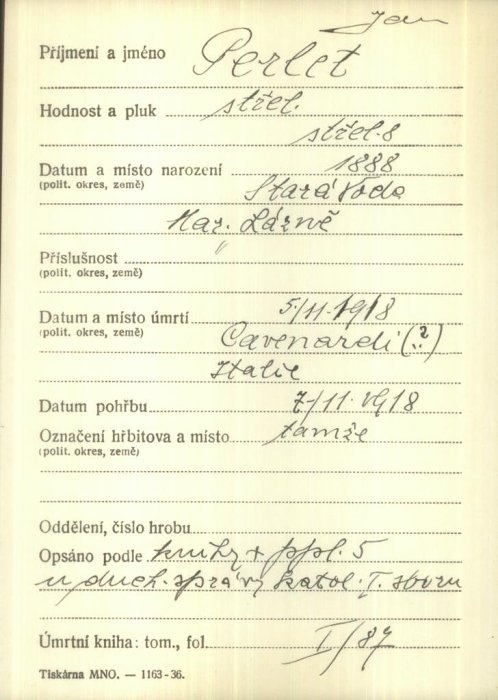 Jan
Příjmení a jméno Perlet
Hodnost a pluk střel.
střel. 8
Datum a místo narození 1888
(polit. okres, země) Stará Voda
Mar. Lázně
Příslušnost "
(polit. okres, země)
Datum a místo úmrtí 5/11. 1918
(polit. okres, země) Cavenardi (?)
Italie
Datum pohřbu 7/11. 1918
Označení hřbitova a místo tamže
(polit. okres, země)
Oddělení, číslo hrobu
Opsáno podle knihy + ppl. 5
u duch. správy katol. I. sboru
Úmrtní kniha: tom., fol. I/87
Tiskárna MNO. — 1163-36.